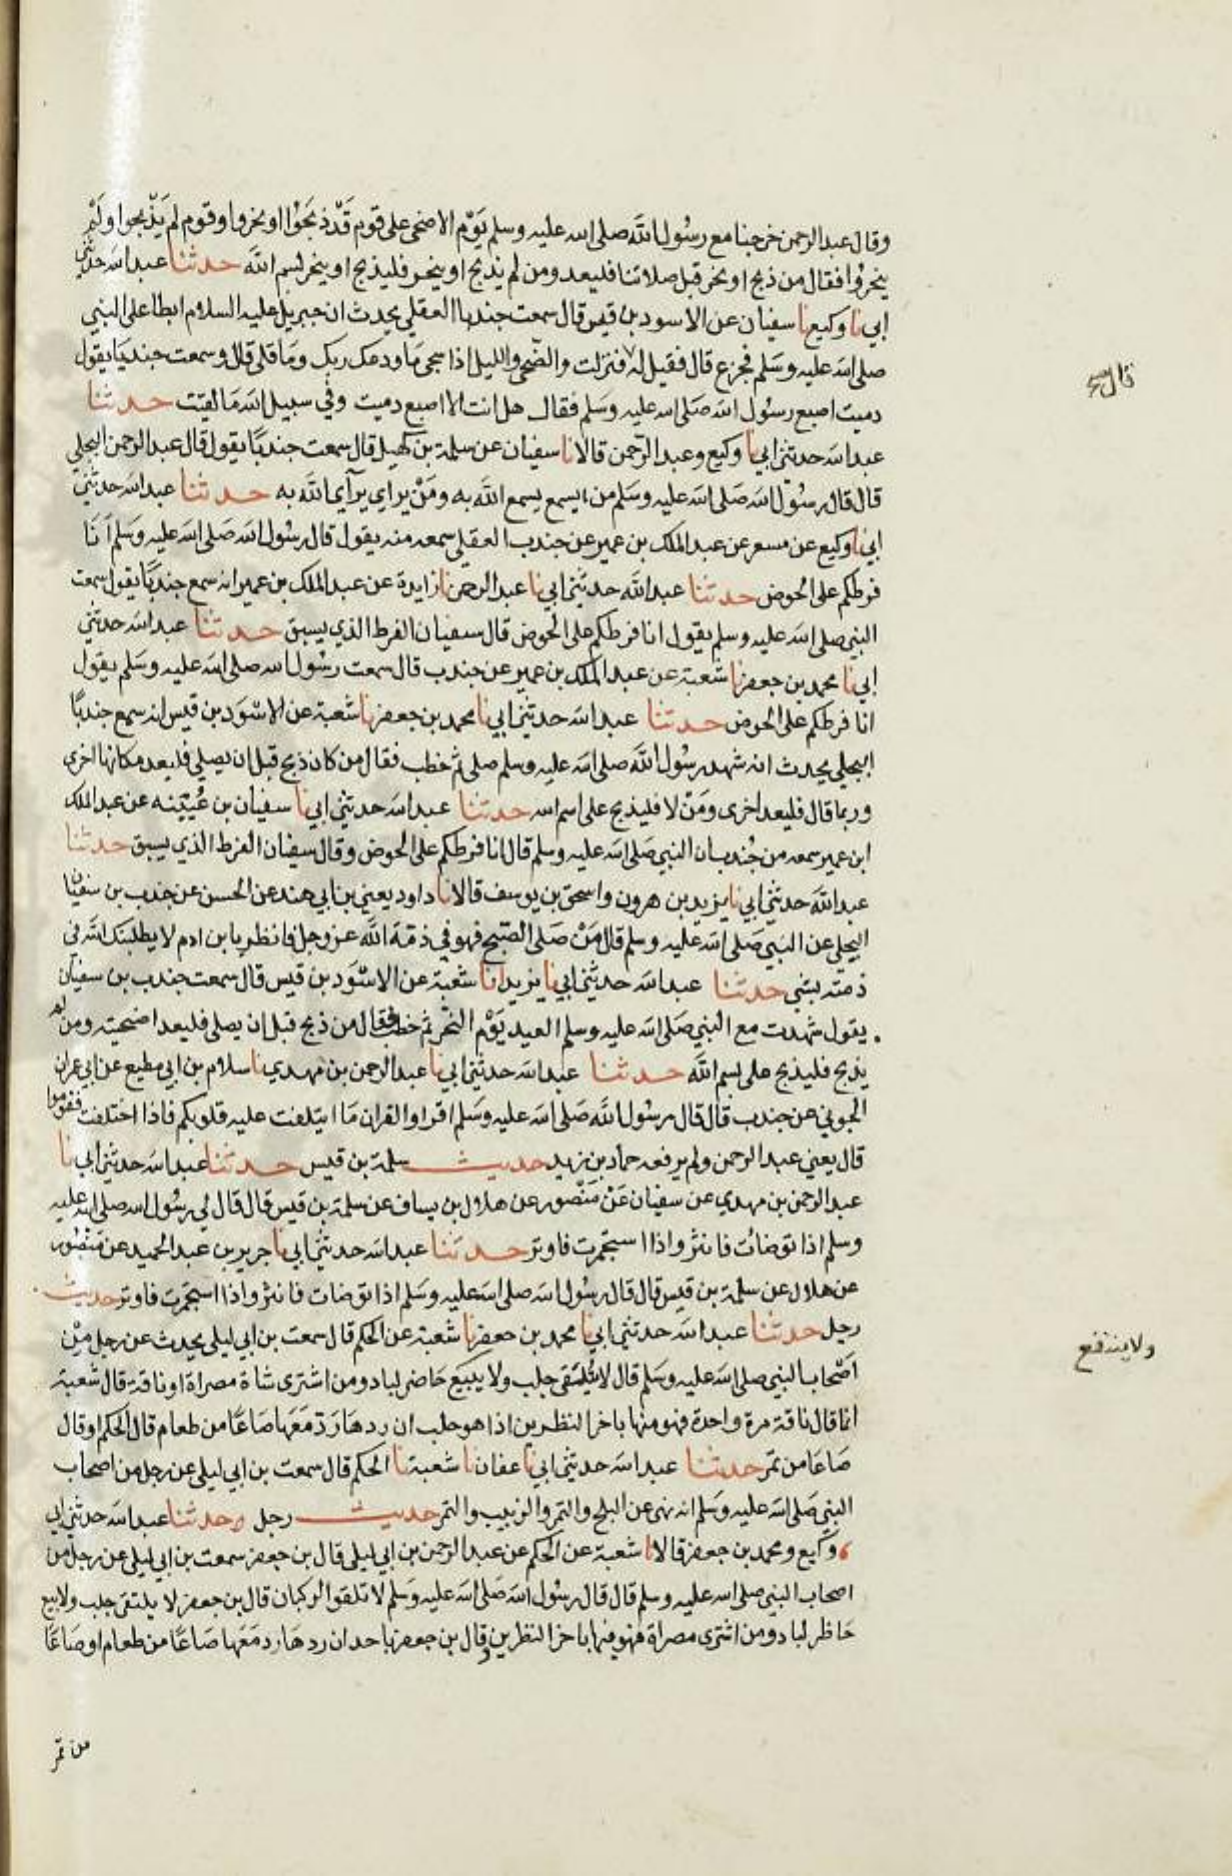 وقال عبد الرحمن خرجنا مع رسُول الله صلى الله عليه وسلم يَوْم الاضحى على قوم قَدْ ذبحَوُا او نحروا وقوم لم يَذْبحوا ولَمْ
ينحرُوا فقال من ذبح او نحر قبل صلاتنا فليعد ومن لم يذبح او ينحر فليذبح او ينحر بسم الله حدثنا عبد الله حدثني
ابي نا وكيع نا سفيان عن الاسود بن قيس قال سمعت جندبا العقلي يحدث ان جبريل عليه السلام ابطا على النبي
صلى الله عليه وسَلم فجزع قال فقيل له فنزلت والضّحى والليل اذا سجى مَا ودعك ربك ومَا قلى قال وسمعت جندبًا يقول
قال
دميت اصبع رسُول الله صَلى الله عليه وسَلم فقال هل انت الا اصبع دميت وفي سبيل الله مَا لقيت حدثنا
عبد الله حدثني ابي نا وكيع وعبد الرّحمن قالا نا سفيان عن سلمة بن كهيل قال سمعت جندبًا يقول قال عبد الرحمن البجلي
قال قال رسُول الله صَلى الله عليه وسَلم من يسمع يسمع الله به ومَنْ يراي يرآي الله به حدثنا عبد الله حدثني
ابي نا وكيع عن مسعر عن عبد الملك بن عمير عن جندب العقلي سمعه منه يقول قال رسُول الله صَلى الله عليه وسَلم اَنَا
فرطكم على الحوض حدثنا عبد الله حدثني ابي نا عبد الرحمن نا زايدة عن عبد الملك بن عمير انه سمع جندبًا يقول سمعت
النبي صلى الله عليه وسلم يقول انا فرطكم على الحوض قال سفيان الفرط الذي يسبق حدثنا عبد الله حدثني
ابي نا محمد بن جعفر نا شعبة عن عبد الملك بن عمير عن جندب قال سمعت رسُول الله صلى الله عليه وسَلم يقول
انا فرطكم على الحوض حدثنا عبد الله حدثني ابي نا محمد بن جعفر نا شعبة عن الاسْوَد بن قيس انه سمع جندبًا
البجلي يحدث انه شهد رسُول الله صلى الله عليه وسلم صلى ثم خطب فقال من كان ذبح قبل ان يصلي فليعد مكانها اخرى
وربما قال فليعد اخرى ومَنْ لا فليذبح على اسم الله حدثنا عبد الله حدثني ابي نا سفيان بن عُيَيْنه عن عبد الملك
ابن عمير سمعه من جُندب ان النبي صَلى الله عليه وسلم قال انا فرطكم على الحوض وقال سفيان الفرط الذي يسبق حدثنا
عبد الله حدثني ابي نا يزيد بن هرون واسحق بن يوسف قالا نا داود يعني بن ابي هند عن الحسن عن جندب بن سفيان
البجلي عن النبي صَلى الله عليه وسلم قال مَنْ صَلى الصّبح فهو في ذمّة الله عز وجل فانظر يا بن ادم لا يطلبنك الله في
ذمته بشي حدثنا عبد الله حدثني ابي نا يزيد انا شعبة عن الاسْوَد بن قيس قال سمعت جندب بن سفيان
يقول شهدت مع النبي صَلى الله عليه وسلم العيد يَوْم النّحر ثم خطب فقال من ذبح قبل ان يصلي فليعد اضحيته ومن لم
يذبح فليذبح على بسم الله حدثنا عبد الله حدثني ابي نا عبد الرحمن بن مهدي نا سلام بن ابي مطيع عن ابي عمران
الجوني عن جندب قال قال رسُول الله صَلى الله عليه وسَلم اقراوا القران مَا ايتلفت عليه قلوبكم فاذا اختلفت فقوموا
قال يعني عبد الرحمن ولم يرفعه حماد بن زيد حديث سلمة بن قيس حدثنا عبد الله حدثني ابي نا
عبد الرحمن بن مهدي عن سفيان عَنْ مَنْصُور عن هلال بن يساف عن سلمة بن قيس قال قال لي رسُول الله صلى الله عليه
وسلم اذا توضات فانثر واذا استجمرت فاوتر حدثنا عبد الله حدثني ابي نا جرير بن عبد الحميد عن منصُور
عن هلال عن سلمة بن قيس قال قال رسُول الله صلى الله عليه وسَلم اذا توضات فانثر واذا استجمرت فاوتر حديث
رجل حدثنا عبد الله حدثني ابي نا محمد بن جعفر نا شعبة عن الحكم قال سمعت بن ابي ليلى يحدث عن رجل مِنْ
ولا ينتفع
اَصْحاب النبي صلى الله عليه وسَلم قال لا يُتلَقى جلب ولا يبيع حَاضر لباد ومن اشترى شاة مصراة او ناقة قال شعبة
انما قال ناقة مرة واحدة فهو منها باخر النظرين اذا هو حلب ان ردها رَدّ مَعَها صَاعًا من طعام قال الحكم او قال
صَاعًا من تمر حدثنا عبد الله حدثني ابي نا عفان نا شعبة نا الحكم قال سمعت بن ابي ليلى عن رجل من اصحاب
النبي صَلى الله عليه وسَلم انه نهى عن البلح والتمر والزبيب والتمر حديث رجل حدثنا عبد الله حدثني ابي
وكيع ومحمد بن جعفر قالا نا شعبة عن الحكم عن عبد الرحمن بن ابي ليلى قال بن جعفر سمعت بن ابي ليلى عن رجل من
اصحاب النبي صلى الله عليه وسلم قال قال رسُول الله صَلى الله عليه وسَلم لا تلقوا الركبان قال بن جعفر لا يلتقى جلب ولا يبيع
حَاظر لباد ومن اشترى مصراة فهو فيها باحد النظرين وقال بن جعفر باحد ان ردها رد مَعَها صَاعًا من طعام او صَاعًا
من تمر